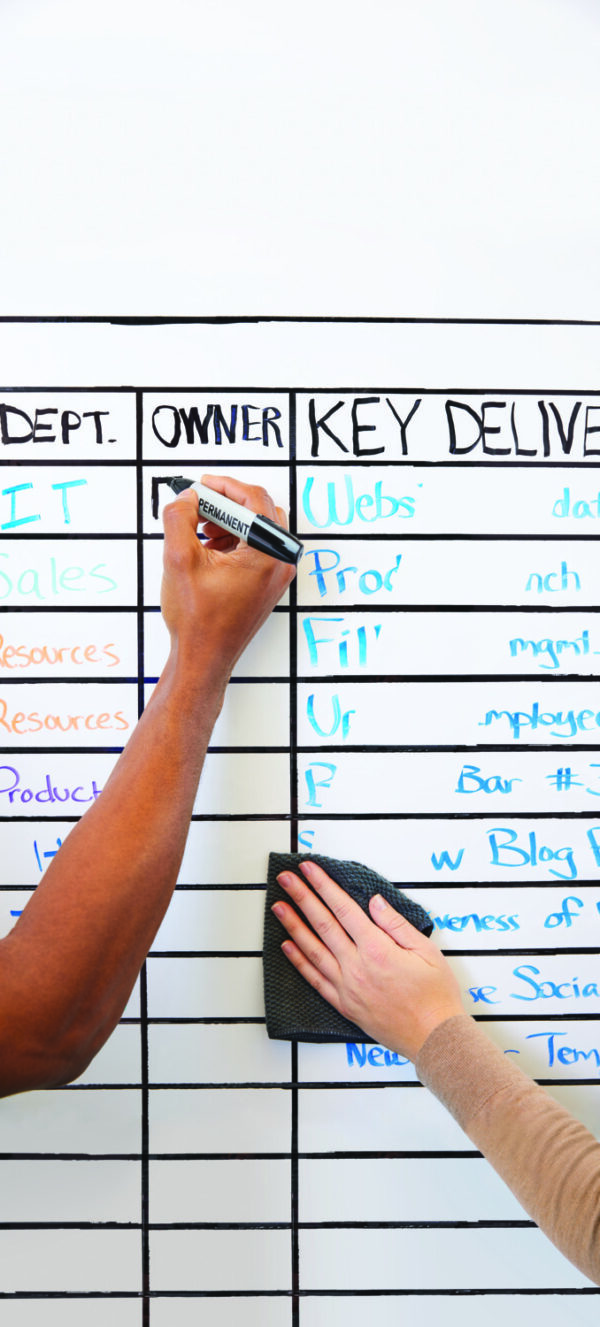 DEPT. OWNER KEY DELIVE
IT PERMANENT Webs dat
Sales Prod nch
Resources Fil mgmt.
Resources Ur mployee
Product Bar #3
H w Blog
veness of
se Socia
New Tem